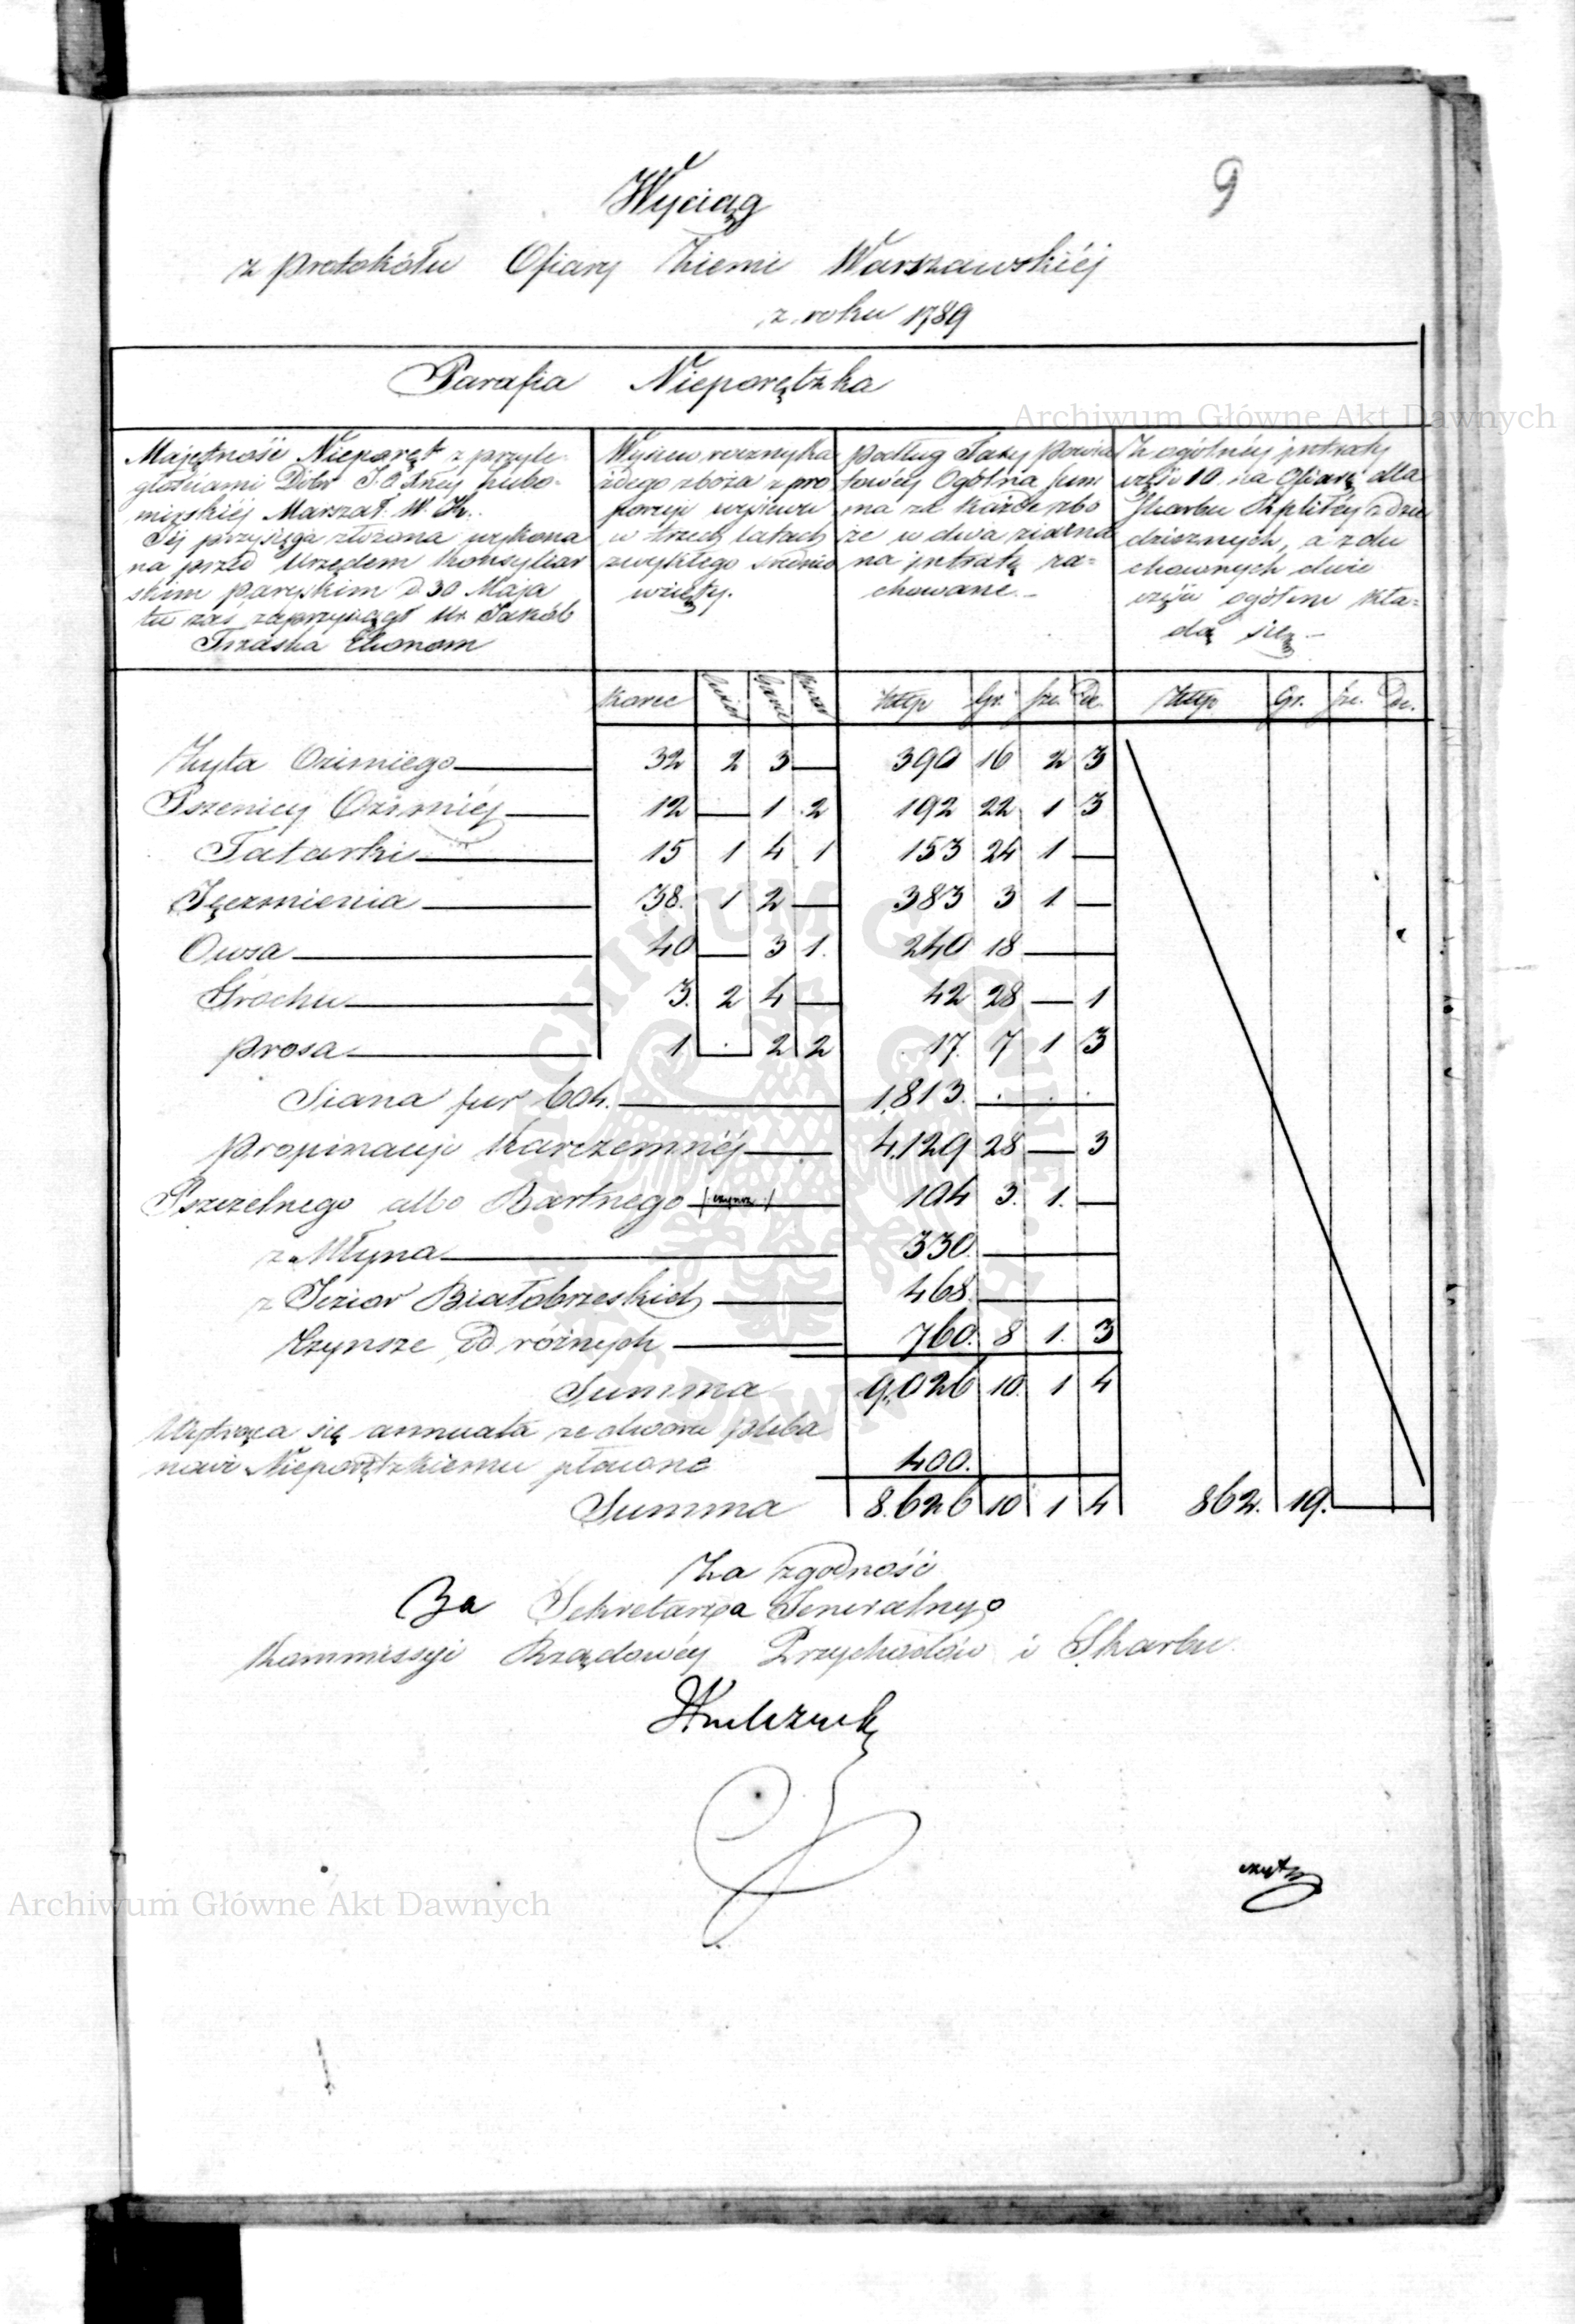 9
Wyciąg
z protokółu Ofiary Ziemi Warszawskiéj
z roku 1789
Parafia Nieporętzka
Majętność Nieporęt z przyle-
głościami Dóbr J. O. Xnéj Lubo-
mirskiéj Marszał. W. K.
Jéj przysięga złożona wykona
na przed Urzędem Konsyliar
skim paryskim d 30 Maja
tu zaś zaprzysiągł Ur. Jakób
Trzaska Ekonom
Wysiew roczny ka
żdego zboża z pro
porcyi wysiewu
w trzech latach
zwykłego średnio
wzięty.
podług Taxy Powia
towéy Ogólna sum
ma za każde zbo
że w dwa ziarna
na jntratę ra=
chowane.-
Z ogólnéy jntraty
część 10 na Ofiarę dla
Skarbu Rzplitéy z dzie
dzicznych, a z du
chownych dwie
części ogółem kła=
dą się.-
Korce Garce Złtp Gr. sze. De. Złtp Gr. sze. De.
Żyta Ozimiégo 32 2 3 — 390 16 2 3
Pszenicy Oziméj 12 — 1 2 192 22 1 3
Tatarki 15 1 4 1 153 24 1 —
Jęczmienia 38. 1 2 — 383 3 1 —
Owsa 40 — 3 1. 240 18 —
Grochu 3. 2 4 — 42 28 — 1
Prosa 1 . 2 2 17. 7 1 3
Siana fur 604. 1,813. . . .
Propinacyi Karczemnéj 4,129 28 — 3
Pszczelnego albo Bartnego /: czynsz :/ 104 3. 1. —
z Młyna 330. —
z Jezior Białobrzeskich 468. —
Czynsze od różnych 760. 8 1. 3
Summa 9,026 10 1 4
Wytrąca się annuata ze dworu pleba
nowi Nieporętzkiemu płacone 400.
Summa 8.626 10 1 4 862. 19. —
Za zgodność
Za Sekretarza Jeneralnego
Kommissyi Rządowéy Przychodów i Skarbu
Archiwum Główne Akt Dawnych
Archiwum Główne Akt Dawnych
ARCHIWUM GŁÓWNE AKT DAWNYCH